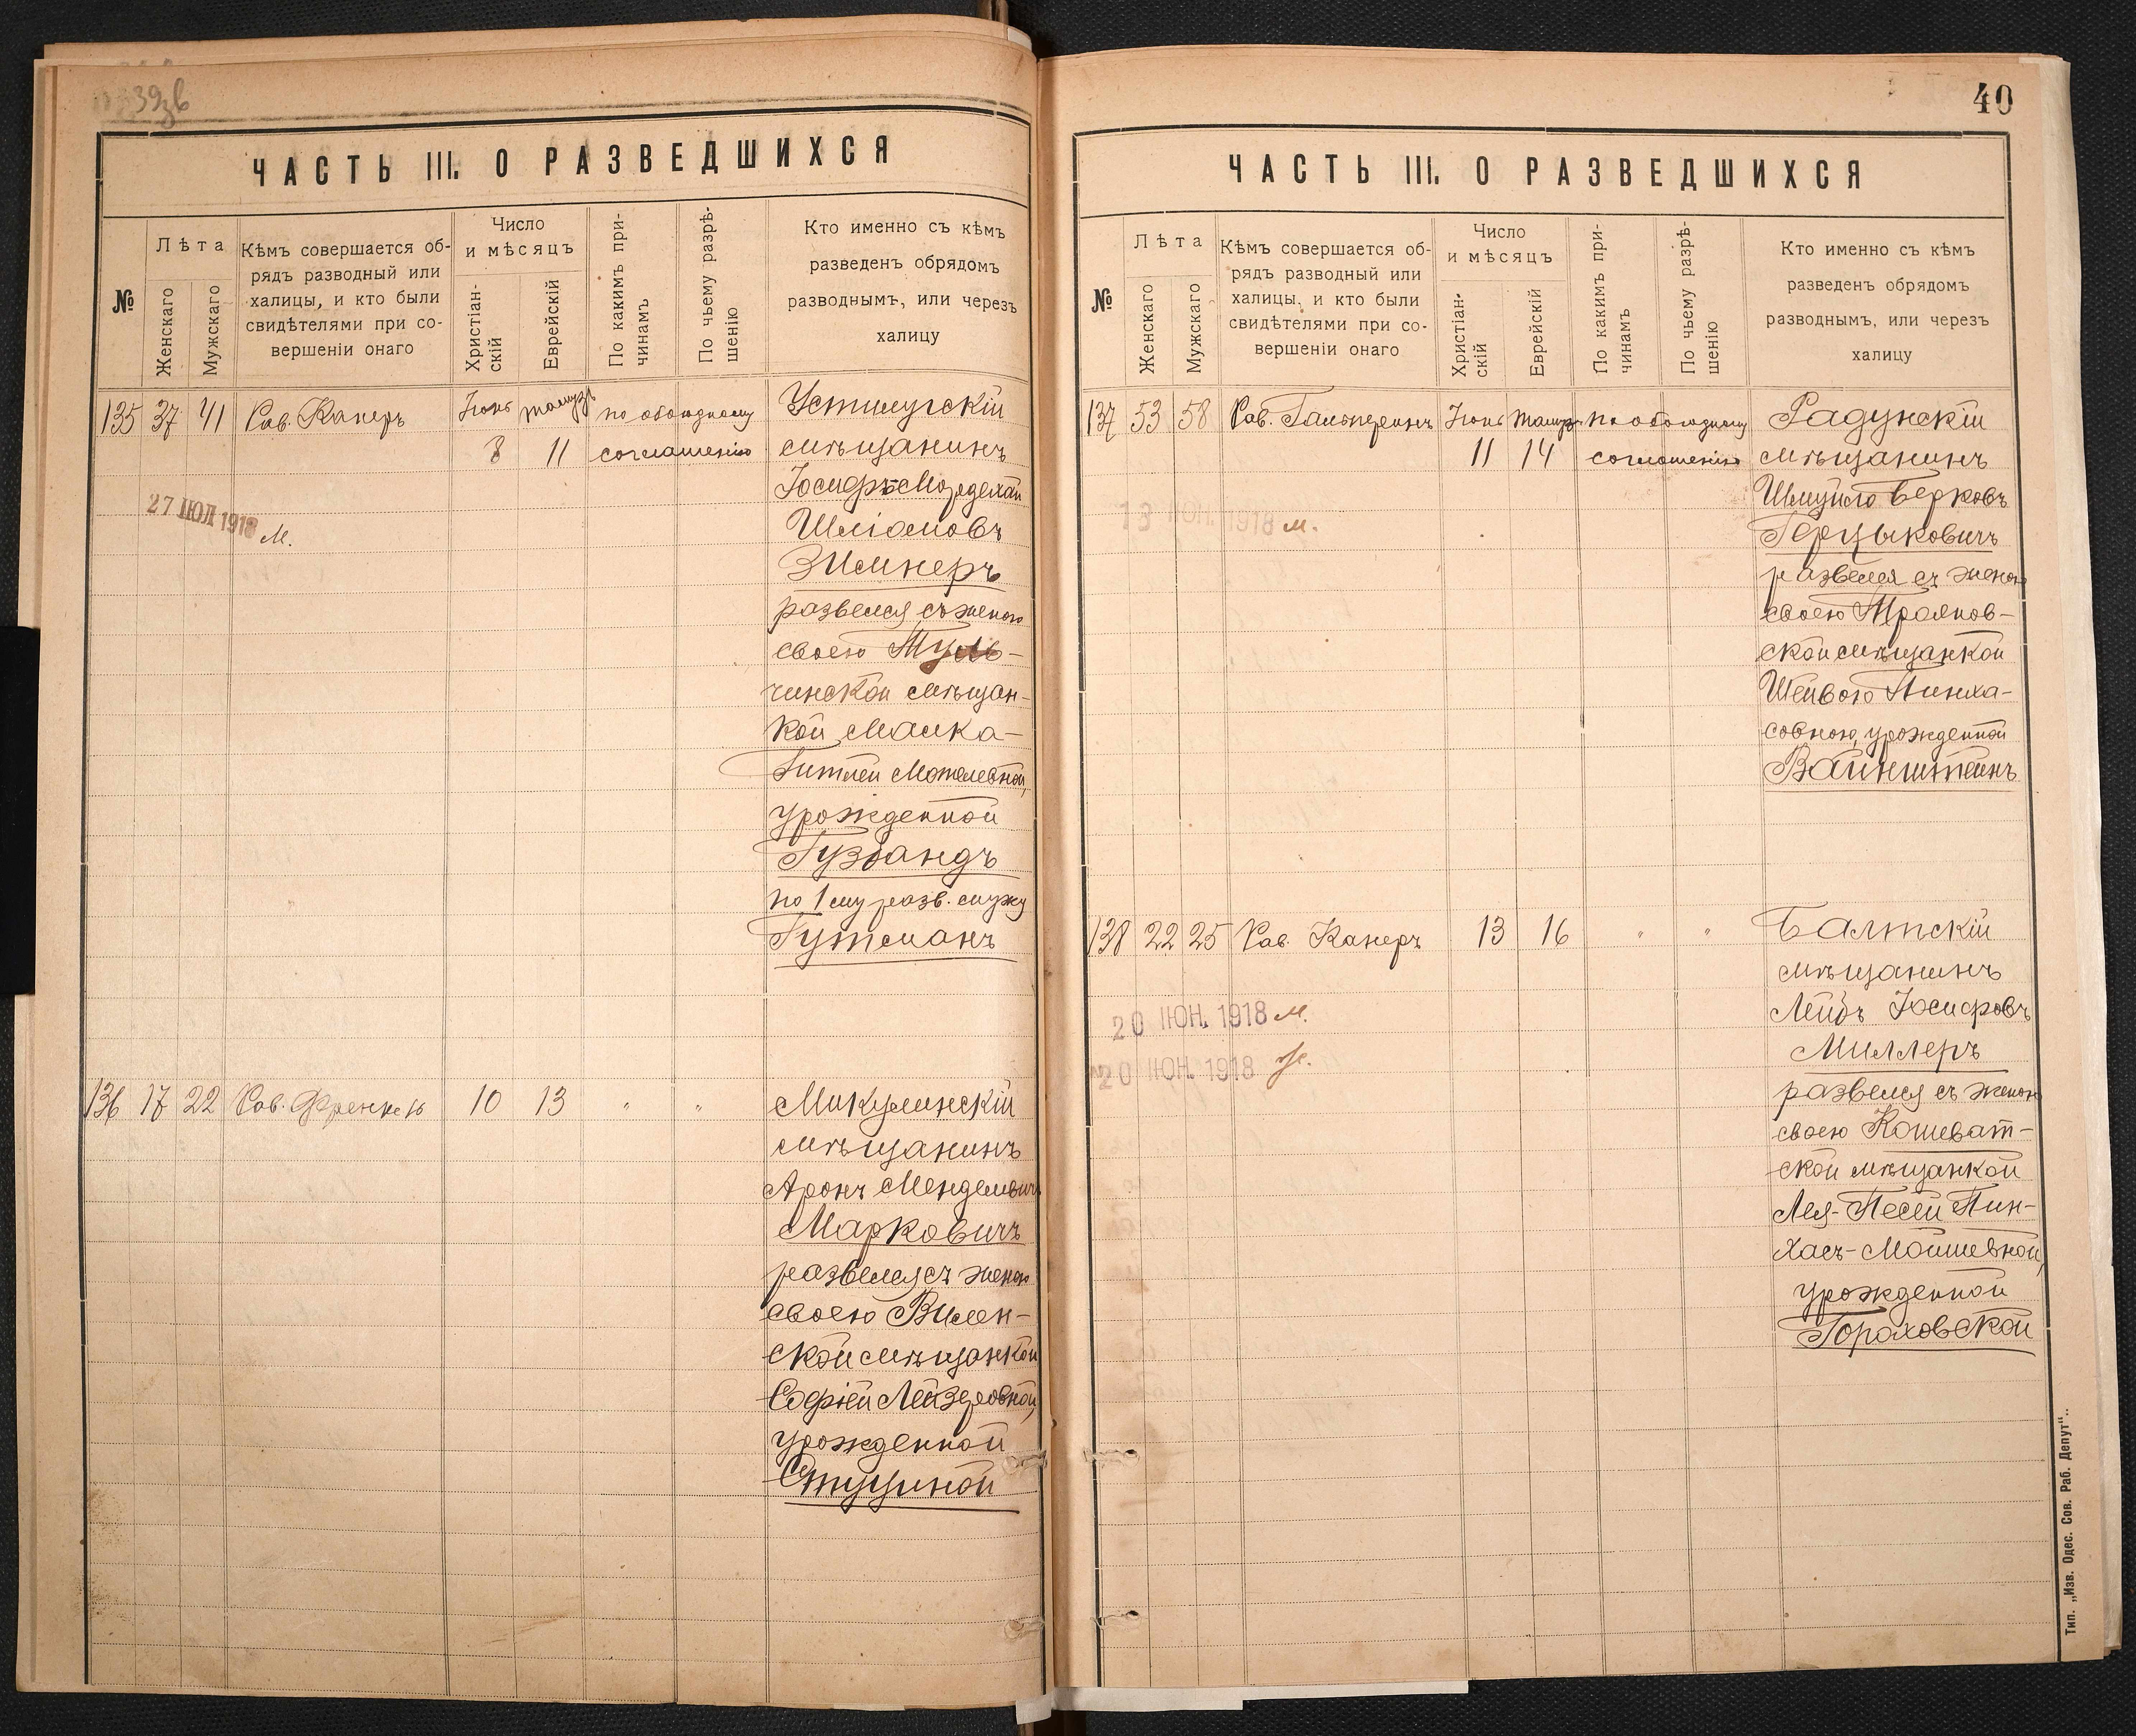 39зв
ЧАСТЬ III. О РАЗВЕДШИХСЯ
№
Лѣта
Женскаго
Мужскаго
Кѣмъ совершается об-
рядъ разводный или
халицы, и кто были
свидѣтелями при со-
вершеніи онаго
Число
и мѣсяцъ
Христіан-
скій
Еврейскій
По какимъ при-
чинамъ
По чьему разрѣ-
шенію
Кто именно съ кѣмъ
разведенъ обрядомъ
разводнымъ, или черезъ
халицу
135 37 41 Рав. Канеръ Іюнь Тамузъ по обоюдному
8 11 соглашенію
Устилугскій
мѣщанинъ
Іосифъ-Мордехай
Шліомовъ
Зильнеръ
развелся съ женою
своею Туль-
чинской мѣщан-
кой Малка-
Гитлей Мотелевной,
урожденной
Гузбандъ
по 1му разв. мужу
Гутманъ
27 ІЮЛ 1918 м.
136 17 22 Рав. Френкель 10 13 " "
Микулинскій
мѣщанинъ
Аронъ Менделевичъ
Марковичъ
развелся съ женою
своею Вилен-
ской мѣщанкой
Софіей Лейзеровной,
урожденной
Стуциной
40
ЧАСТЬ III. О РАЗВЕДШИХСЯ
№
Лѣта
Женскаго
Мужскаго
Кѣмъ совершается об-
рядъ разводный или
халицы, и кто были
свидѣтелями при со-
вершеніи онаго
Число
и мѣсяцъ
Христіан-
скій
Еврейскій
По какимъ при-
чинамъ
По чьему разрѣ-
шенію
Кто именно съ кѣмъ
разведенъ обрядомъ
разводнымъ, или черезъ
халицу
137 53 58 Рав. Гальперинъ Іюнь Тамузъ по обоюдному
11 14 соглашенію
Радунскій
мѣщанинъ
Шмуйло Берковъ
Герцыковичъ
развелся съ женою
своею Трояновской
ской мѣщанкой
Шейвою Пинха-
совною, урожденной
Вайнштейнъ
13 ІЮН. 1918 м.
138 22 25 Рав. Канеръ 13 16 " "
Балтскій
мѣщанинъ
Лейбъ Іосифовъ
Миллеръ
развелся съ женою
своею Кошеват-
ской мѣщанкой
Лея-Песей Пин-
хасъ-Мойшевной,
урожденной
Гороховской
20 ІЮН. 1918 м.
20 ІЮН. 1918 ж.
Тип. „Изв. Одес. Сов. Раб. Депут"..